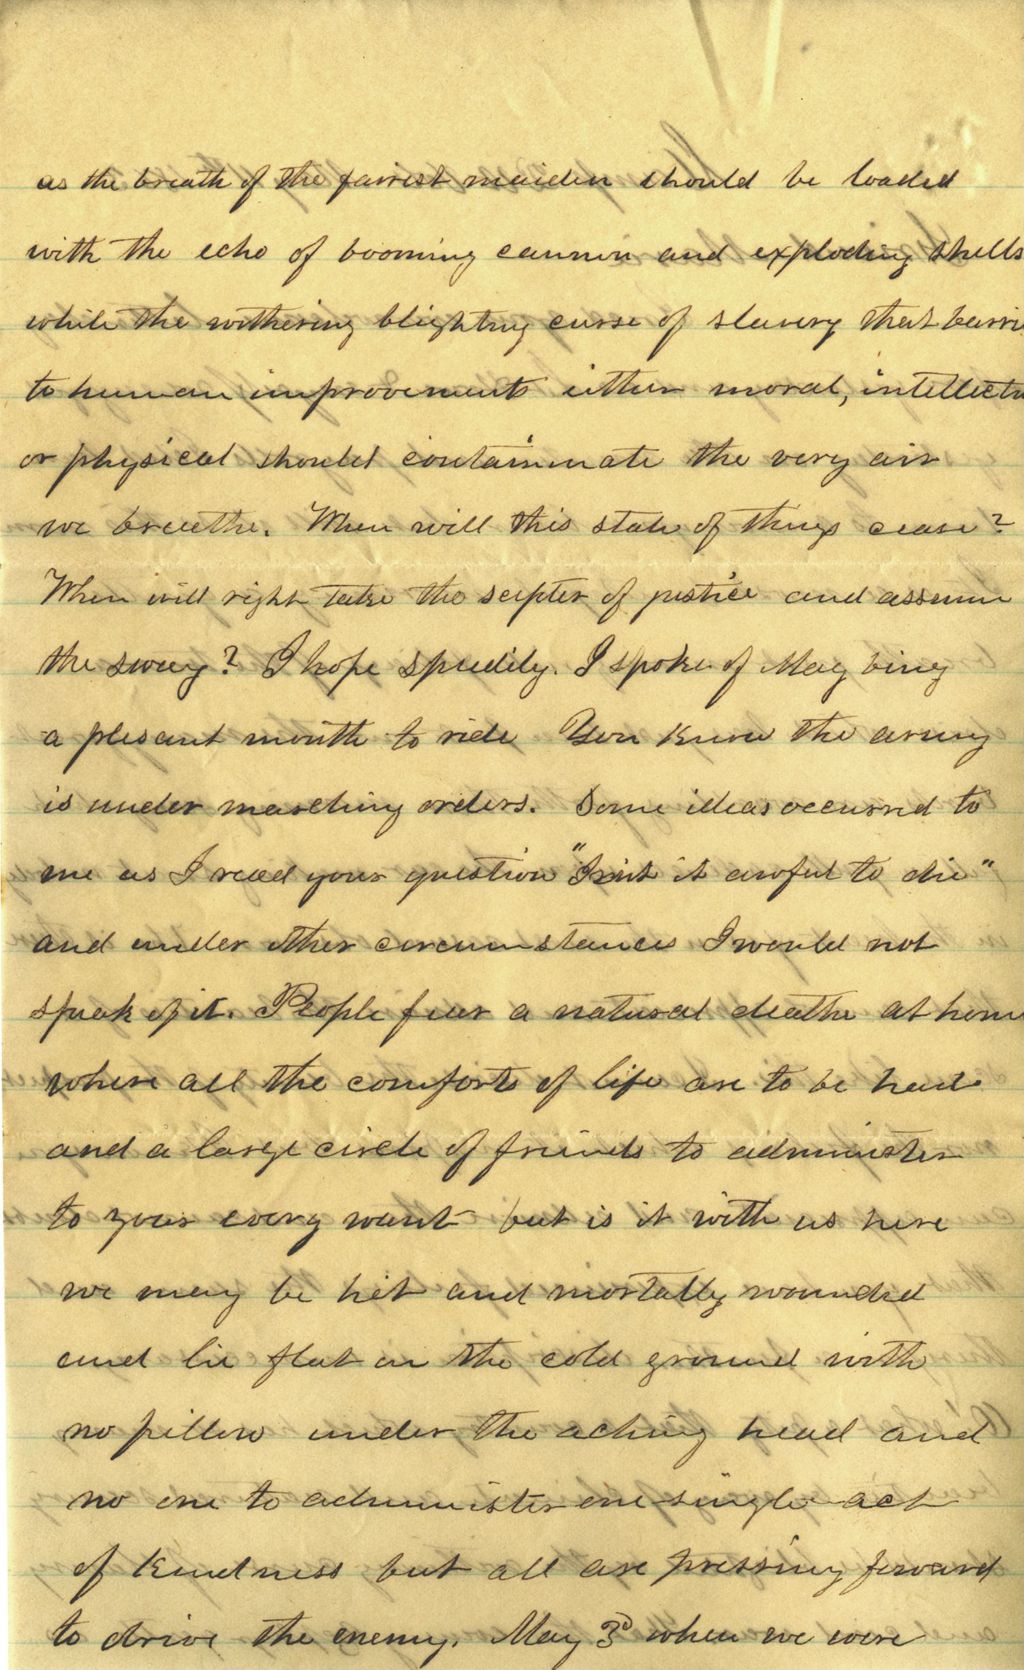 as the breath of the fairest maiden should be loaded
with the echo of booming cannon and exploding shells
while the withering blighting curse of slavery that barri
to human improvements either moral, intellectu
or physical should contaminate the very air
we breethe. When will this state of things cease?
When will right take the scepter of justice and assume
the sway? I hope speedily. I spoke of May bing
a plesant month to ride You know the army
is under marching orders. Some ideas occurred to
me as I read your question "Isint it awful to die"
and under other circumstances I would not
speak of it. People fear a natural deathe at home
where all the comforts of life are to be had
and a large circle of friends to administer
to your every want but is it with us here
we may be hit and mortally wounded
and lie flat on the cold ground with
no pillow under the aching head and
no one to administer one single act
of kindness but all are pressing forward
to drive the enemy. May 3d when we were